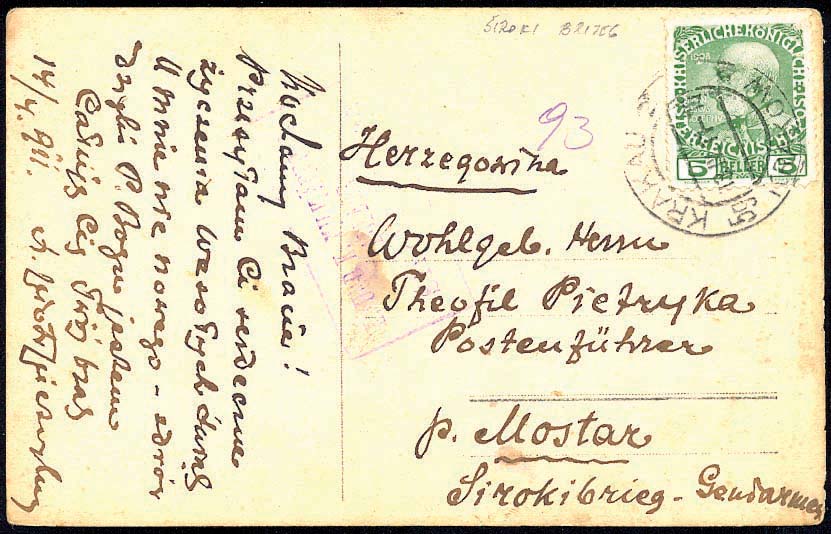 ŠIROKI BRIJEG
93
Herzegowina
Wohlgeb. Herrn
Theofil Pietryka
Postenführer
p. Mostar
Sirokibrieg - Gendarmer
Kochany Bracie!
Przesyłam Ci serdeczne
życzenia Wesołych Świąt
U mnie nic nowego - zdrów
dzięki P. Bogu jestem
Całuję Cię Twój brat
14/4. 911.
KAISERLICHE KÖNIGLICHE
ÖSTERREICHISCHE
1908
5 HELLER 5
KRAKAU